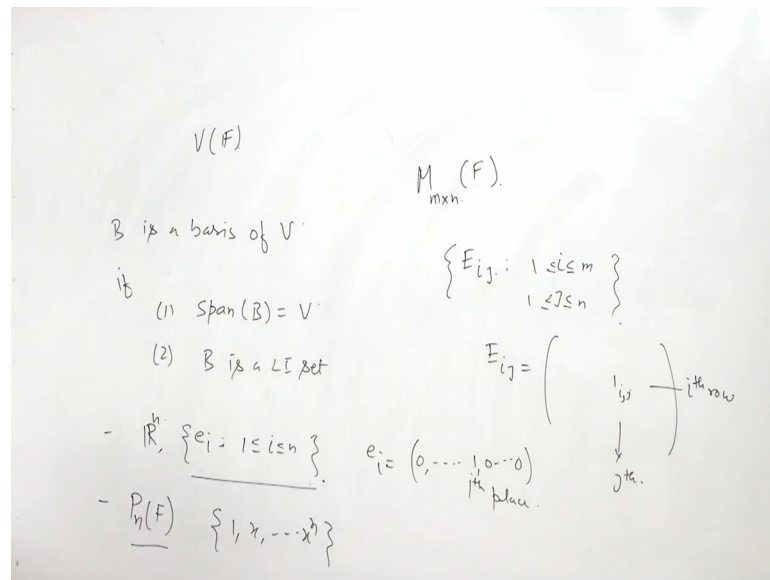 V(F)
B is a basis of V.
if
(1) Span(B) = V.
(2) B is a LI set
- ℝⁿ, {eᵢ : 1 ≤ i ≤ n}.
eᵢ = (0, ---- 1, 0---0)
iᵗʰ place.
- Pₙ(F) {1, x, ---xⁿ}
M (F).
m×n.
{Eᵢⱼ. : 1 ≤ i ≤ m
1 ≤ J ≤ n}.
Eᵢⱼ = ( 1ᵢ,ⱼ ) — iᵗʰ row
↓
jᵗʰ.